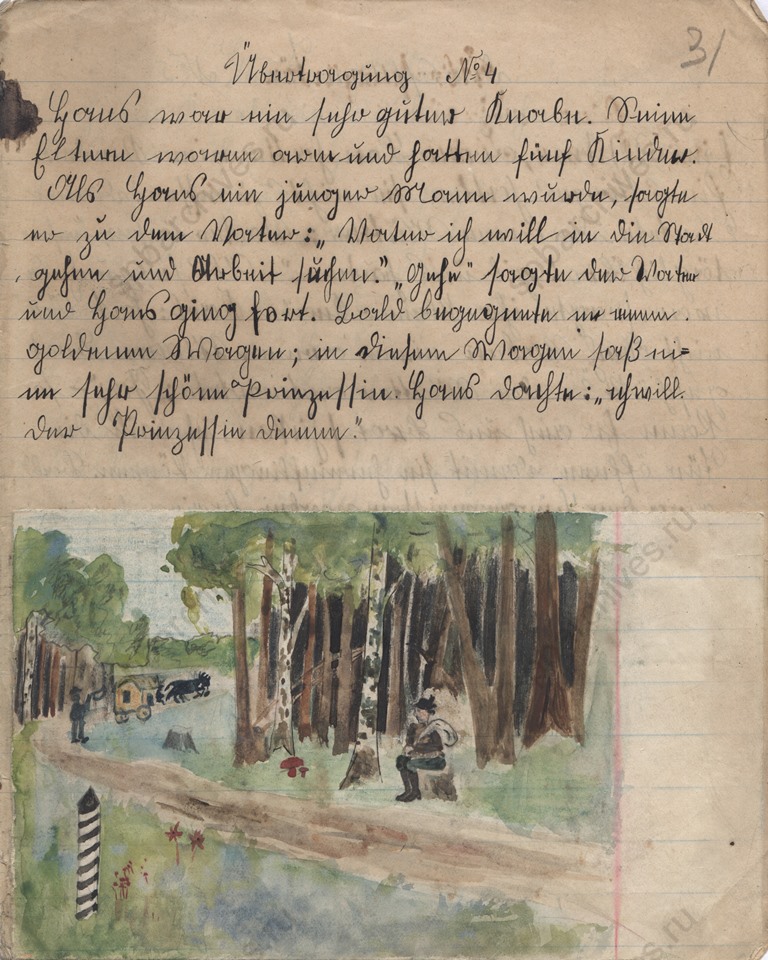 31
Übertragung №4
Hans war ein sehr guter Knabe. Seine
Eltern waren arm und hatten fünf Kinder.
Als Hans ein junger Mann wurde, sagte
er zu dem Vater: „Vater ich will in die Stadt
gehen und Arbeit suchen." „Gehe" sagte der Vater
und Hans ging fort. Bald begegnete er einem
goldenen Wagen; in diesem Wagen saß ei=
ne sehr schöne Prinzessin. Hans dachte: „ich will
der Prinzessin dienen."